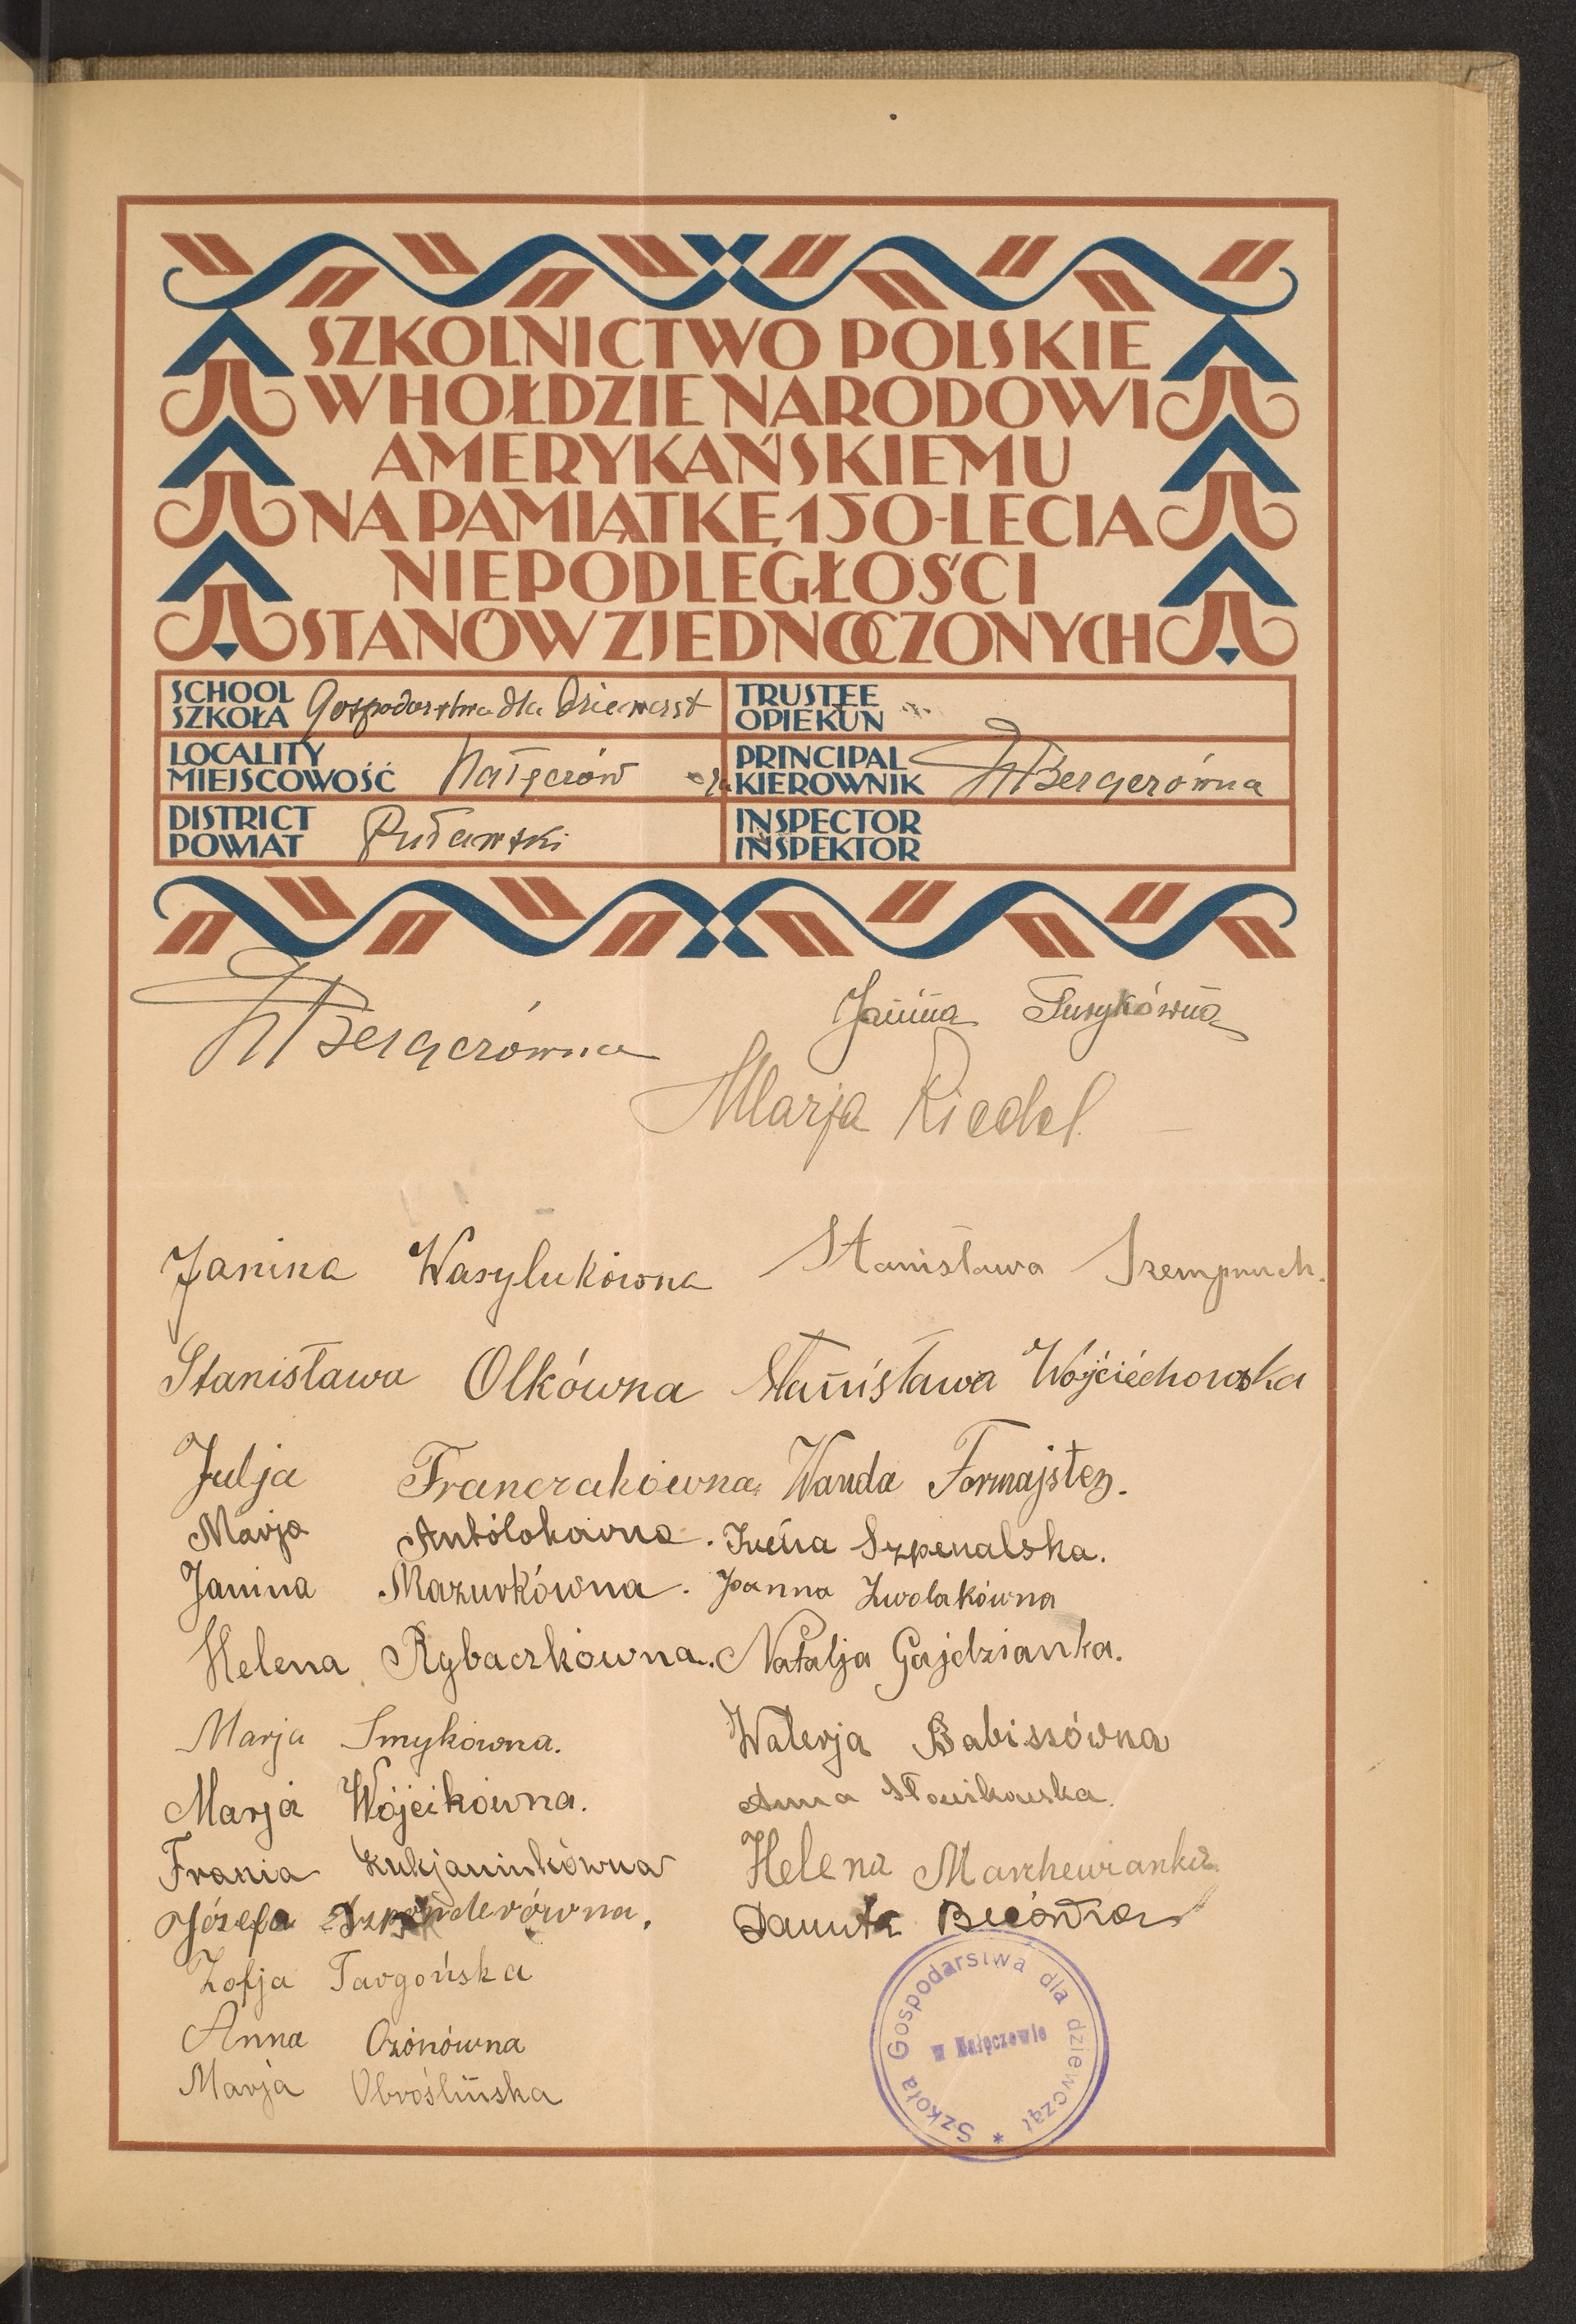 SZKOLNICTWO POLSKIE
W HOŁDZIE NARODOWI
AMERYKAŃSKIEMU
NA PAMIĄTKĘ 150-LECIA
NIEPODLEGŁOŚCI
STANÓW ZJEDNOCZONYCH
SCHOOL
SZKOŁA Gospodarstwa dla Dziewcząt
TRUSTEE
OPIEKUN
LOCALITY
MIEJSCOWOŚĆ Nałęczów
PRINCIPAL
KIEROWNIK Bergerówna
DISTRICT
POWIAT Puławski
INSPECTOR
INSPEKTOR
Bergerówna
Janina
Marja Riedel
Janina Wasylukówna Stanisława
Stanisława Olkówna Stanisława Wójciechowska
Julja Franczakówna Wanda
Marja Antolokówna. Irena Szpenalska.
Janina Mazurkówna. Joanna Zwolakówna
Helena Rybaczkówna. Natalja Gajdzianka.
Marja Smykówna. Walerja Babiszówna
Marja Wójcikówna. Anna Słowikowska.
Frania Łukjaniukówna Helena Marchewianka
Józefa Danuta
Zofja Targońska
Anna Ozonówna
Marja Obroślińska
Szkoła Gospodarstwa dla dziewcząt *
w Nałęczowie